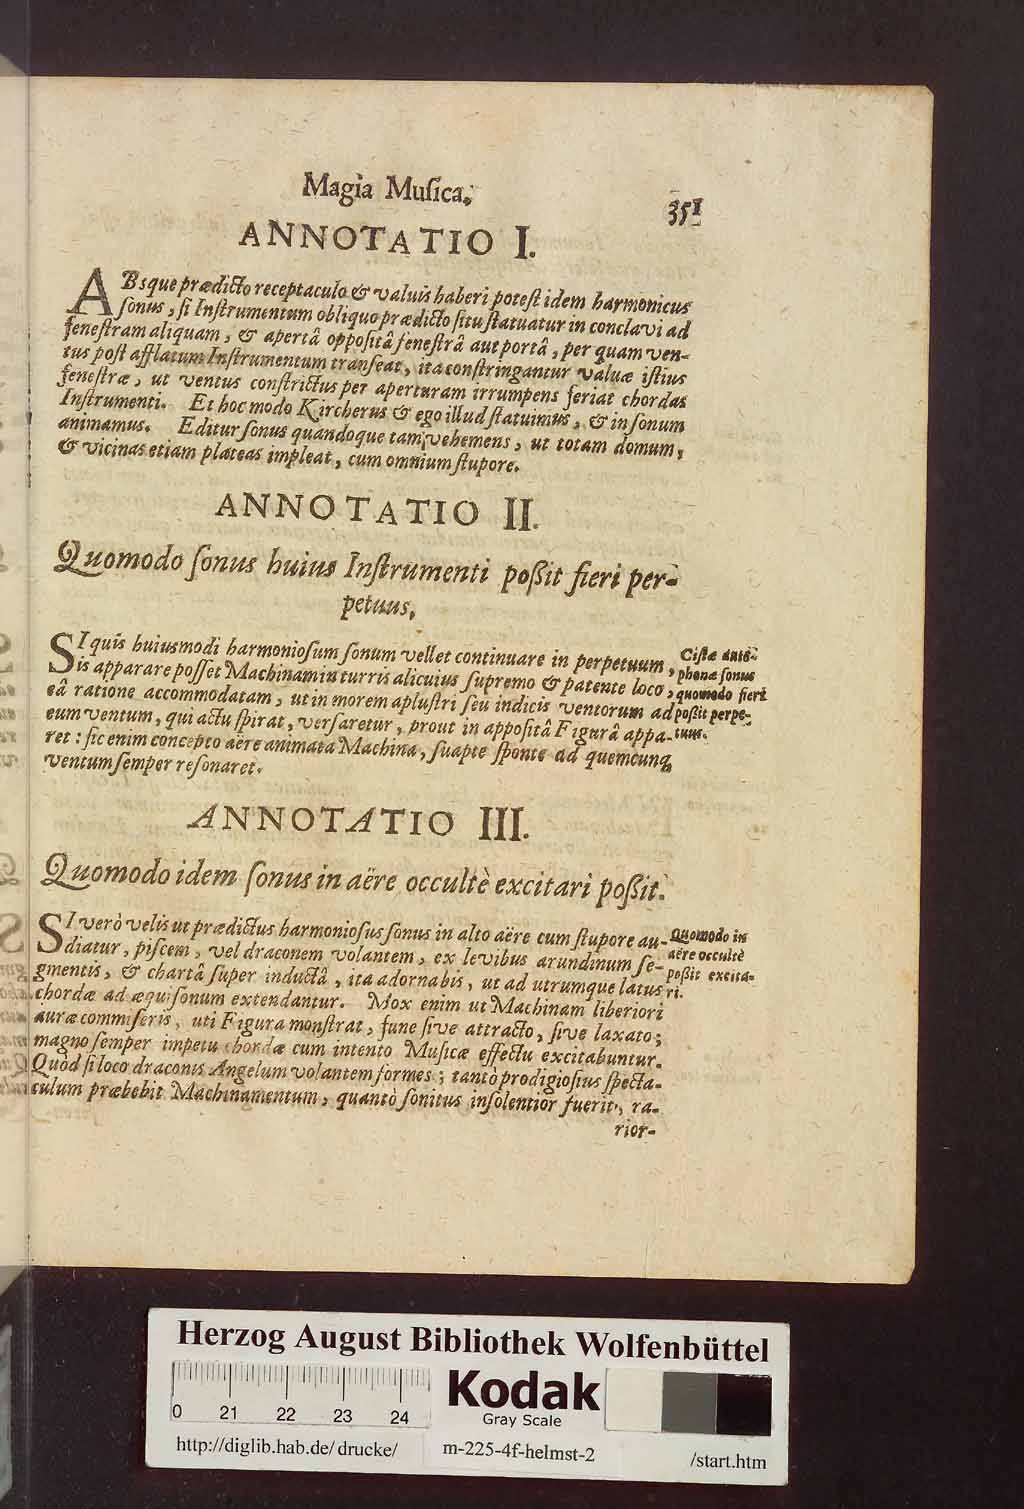 Magia Muſica.
351
ANNOTATIO I.
ABsque prædicto receptaculo & valvis haberi poteſt idem harmonicus
ſonus, ſi Inſtrumentum obliquo prædicto ſitu ſtatuatur in conclavi ad
feneſtram aliquam, & apertâ oppoſitâ feneſtrâ aut portâ, per quam ven-
tus poſt afflatum Inſtrumentum tranſeat, ita conſtringantur valvæ iſtius
feneſtræ, ut ventus conſtrictus per aperturam irrumpens feriat chordas
Inſtrumenti. Et hoc modo Kircherus & ego illud ſtatuimus, & in ſonum
animamus. Editur ſonus quandoque tam vehemens, ut totam domum,
& vicinas etiam plateas impleat, cum omnium ſtupore.
ANNOTATIO II.
Quomodo ſonus huius Inſtrumenti poßit fieri per-
petuus.
SI quis huiusmodi harmonioſum ſonum vellet continuare in perpetuum,
is apparare poſſet Machinam in turris alicuius ſupremo & patente loco,
eâ ratione accommodatam, ut in morem apluſtri ſeu indicis ventorum ad
eum ventum, qui actu ſpirat, verſaretur, prout in appoſitâ Figurâ appa-
ret: ſic enim concepto aëre animata Machina, ſuapte ſponte ad quemcunq;
ventum ſemper reſonaret.
Ciſtæ anto-
phonæ ſonus
quomodo fieri
poßit perpe-
tuus.
ANNOTATIO III.
Quomodo idem ſonus in aëre occultè excitari poßit.
SI verò velis ut prædictus harmonioſus ſonus in alto aëre cum ſtupore au-
diatur, piſcem, vel draconem volantem, ex levibus arundinum ſe-
gmentis, & chartâ ſuper inductâ, ita adornabis, ut ad utrumque latus
chordæ ad æquiſonum extendantur. Mox enim ut Machinam liberiori
auræ commiſeris, uti Figura monſtrat, fune ſive attracto, ſive laxato;
magno ſemper impetu chordæ cum intento Muſicæ effectu excitabuntur.
Quòd ſi loco draconis Angelum volantem formes; tantò prodigioſius ſpecta-
culum præbebit Machinamentum, quantò ſonitus inſolentior fuerit, ra-
rior-
Quomodo in
aëre occultè
poßit excita-
ri.
Herzog August Bibliothek Wolfenbüttel
0 21 22 23 24
Kodak
Gray Scale
http://diglib.hab.de/drucke/
m-225-4f-helmst-2
/start.htm